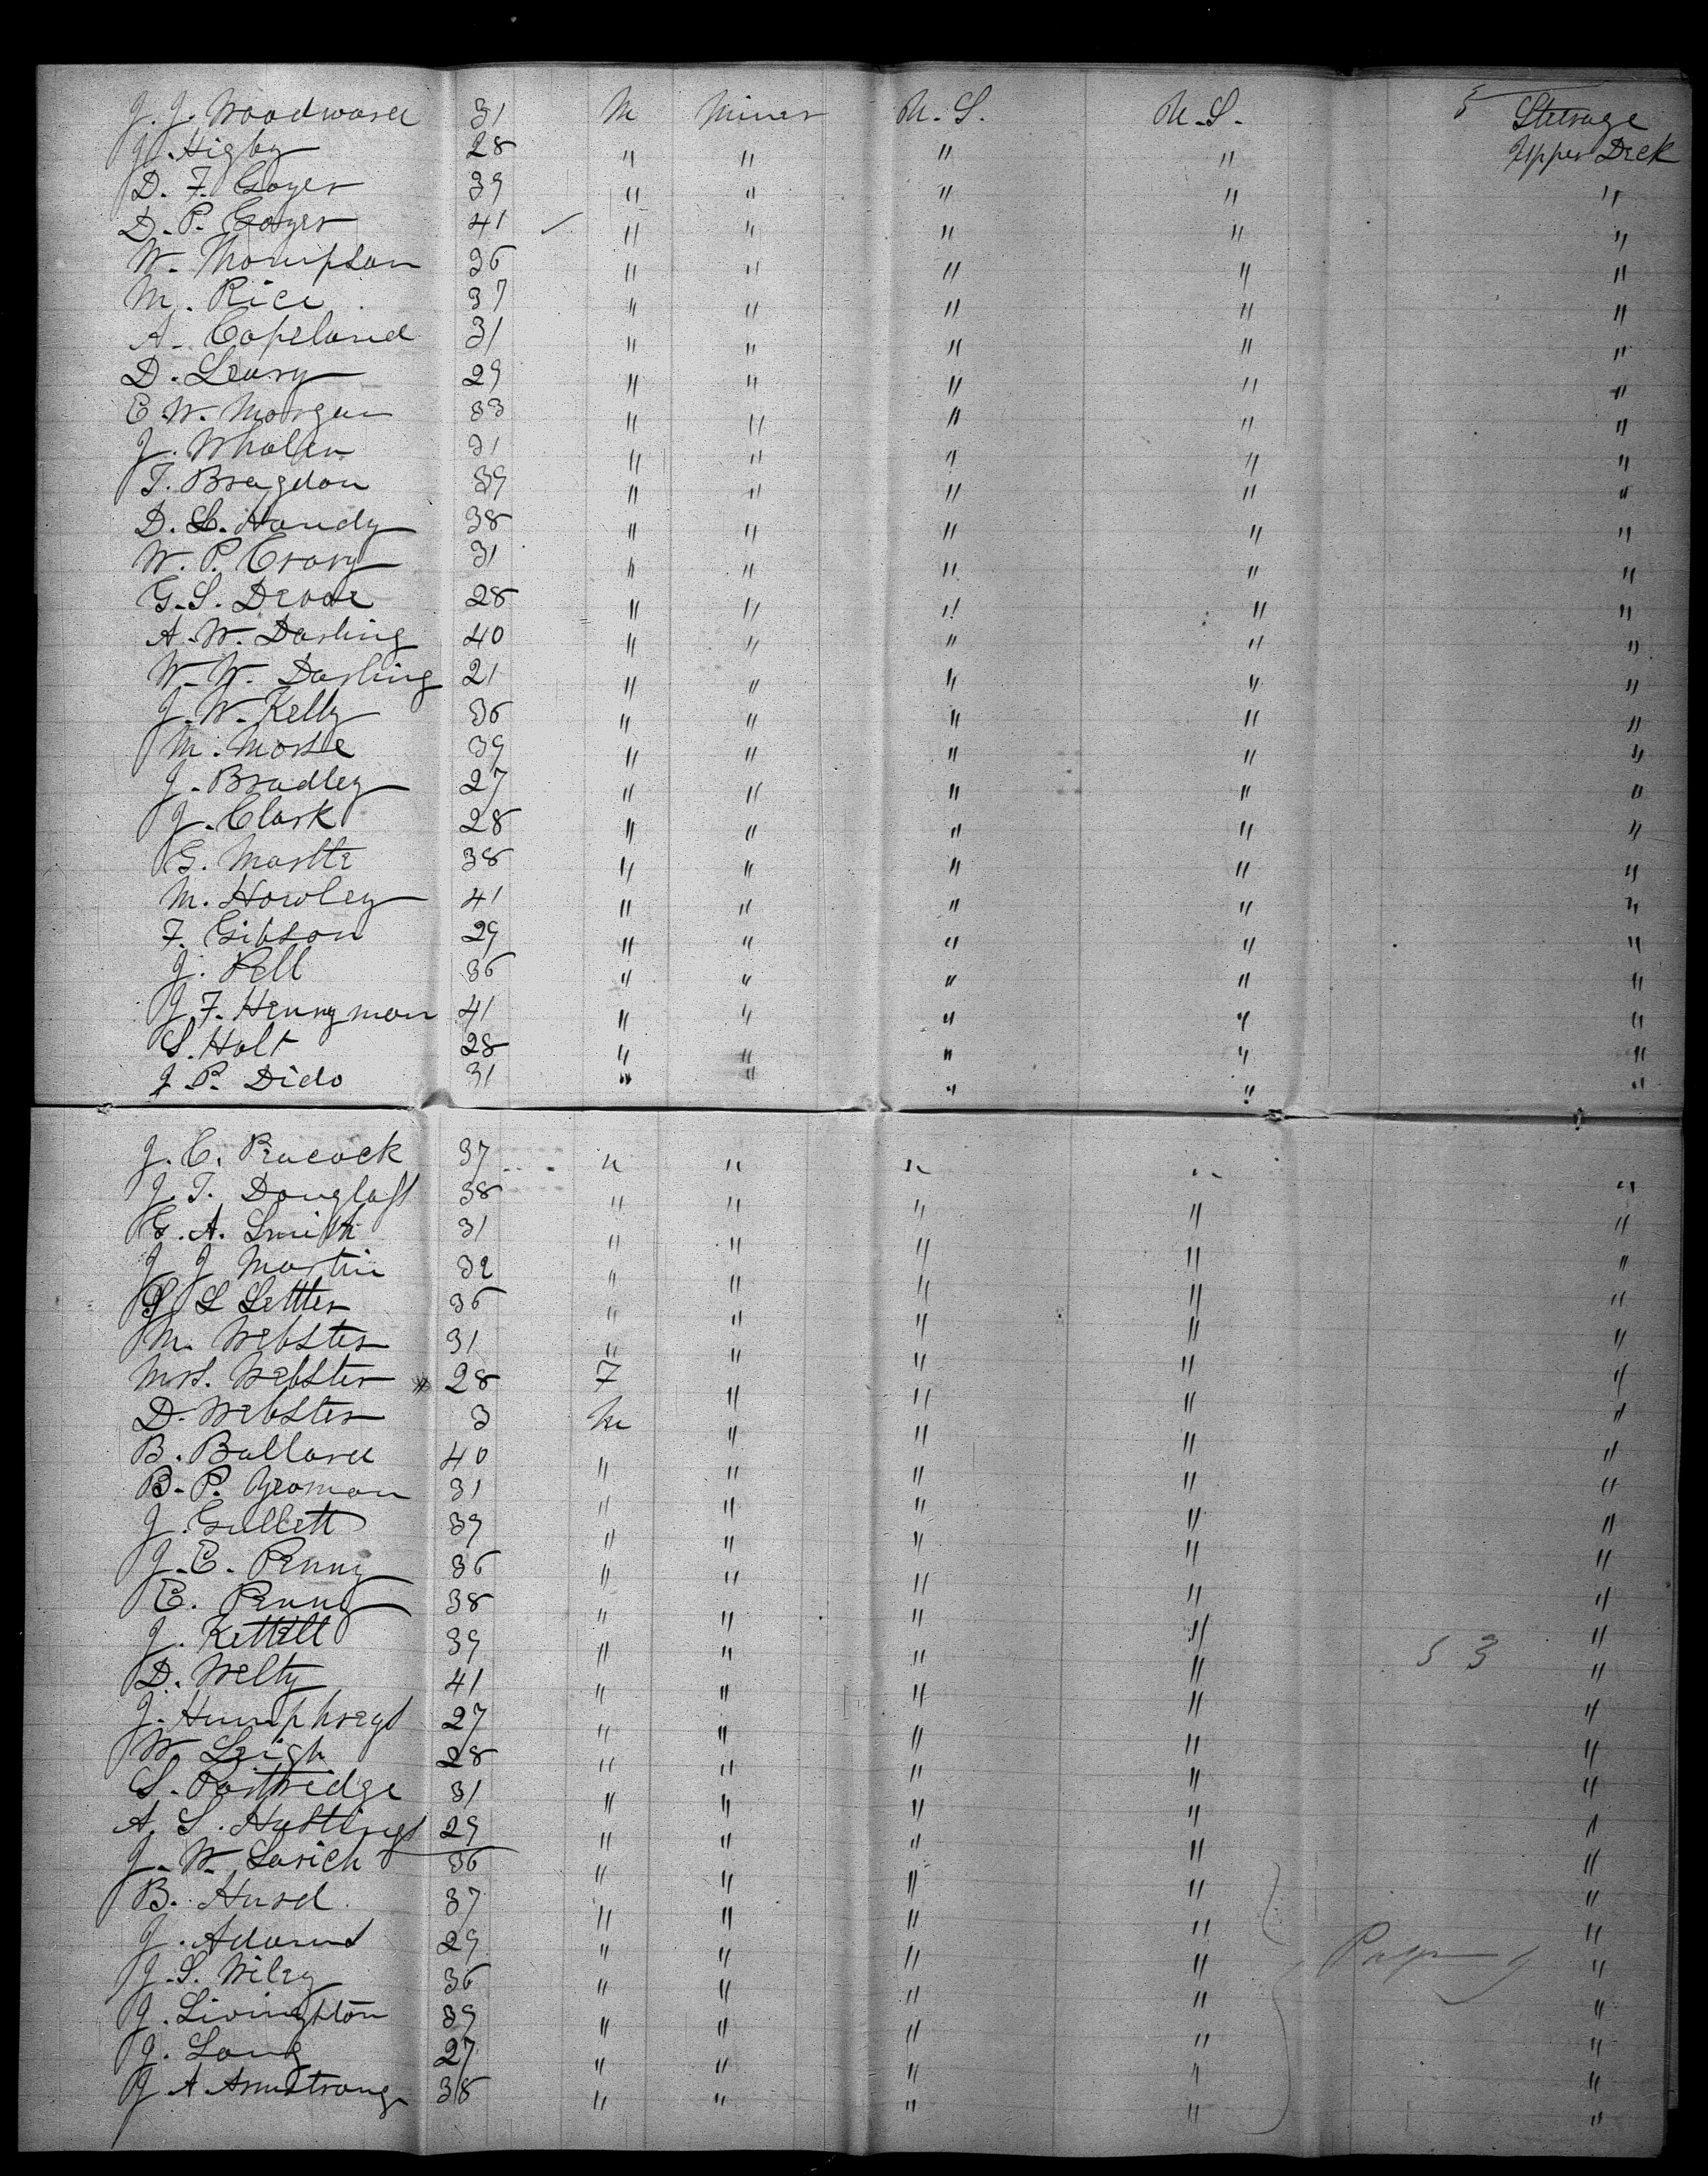 J. J. Woodward 31 M Miner U.S. U.S. Steerage
J. Higby 28 " " " " Upper Deck
D. F. Goyer 39 " " " " "
D. P. Goyer 41 ✓ " " " " "
W. Thompson 36 " " " " "
M. Rice 37 " " " " "
A. Copeland 31 " " " " "
D. Leary 29 " " " " "
E. W. Morgan 33 " " " " "
J. Whalen 31 " " " " "
T. Bragdon 39 " " " " "
D. L. Handy 38 " " " " "
W. P. Crary 31 " " " " "
G. S. Devoe 28 " " " " "
A. W. Darling 40 " " " " "
W. W. Darling 21 " " " " "
J. W. Kelly 36 " " " " "
M. Morse 39 " " " " "
J. Bradley 27 " " " " "
J. Clark 28 " " " " "
G. 38 " " " " "
M. Howley 41 " " " " "
F. Gibson 29 " " " " "
J. Pell 36 " " " " "
J. F. Hennyman 41 " " " " "
S. Holt 28 " " " " "
J. P. Dido 31 " " " " "
J. C. Peacock 37 " " " " "
J. T. Douglass 38 " " " " "
G. A. Smith 31 " " " " "
J J Martin 32 " " " " "
L Settler 36 " " " " "
M. Webster 31 " " " " "
Mrs. Webster 28 F " " " "
D. Webster 3 M " " " "
B. Ballard 40 " " " " "
B. P. Yeoman 31 " " " " "
J. Gullett 39 " " " " "
J. C. Penny 36 " " " " "
C. Penny 38 " " " " "
J. Kettell 39 " " " " 53 "
D. Welty 41 " " " " "
J. Humphreys 27 " " " " "
W. Leigh 28 " " " " "
S. Partridge 31 " " " " "
A. S. Hastings 29 " " " " "
J. W. Larich 36 " " " " "
B. Hurd 37 " " " " "
J. Adams 29 " " " " "
J. S. Wiley 36 " " " " "
J. Livingston 39 " " " " "
J. Long 27 " " " " "
J A Armstrong 38 " " " " "